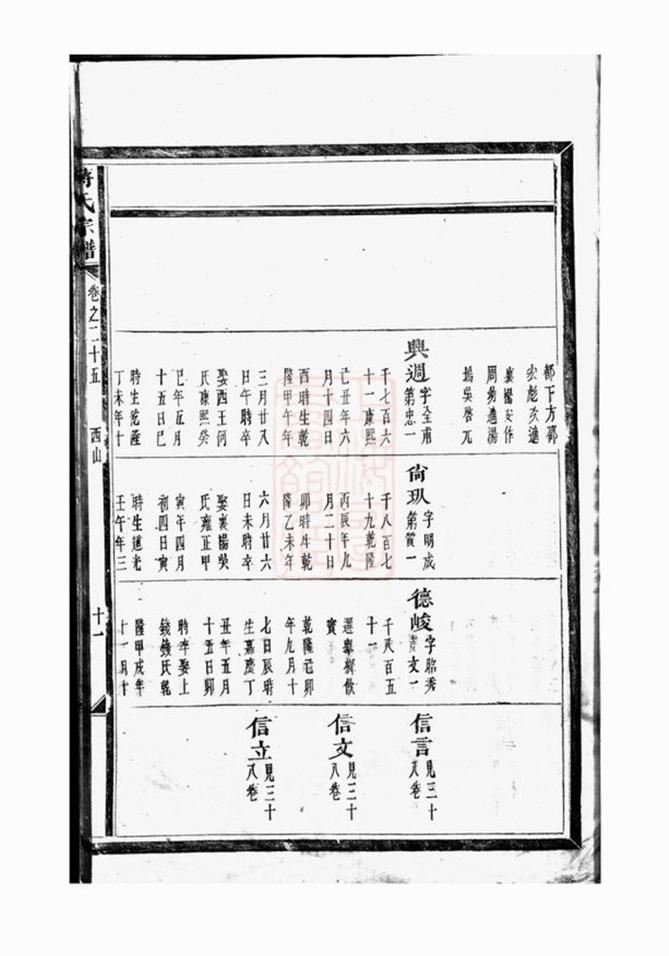 都下方邵
宏彪次適
襄陽安作
周幼適湯
塢吳啓元
興週字全甫
第忠一
千七百六
十一康熙
己丑年六
月十四日
酉時生乾
隆甲午年
三月廿八
日午時卒
娶西王何
氏康熙癸
巳年五月
十五日巳
時生乾隆
丁未年十
尙玐字明成
第質一
千八百七
十九乾隆
丙辰年九
月二十日
卯時生乾
隆乙未年
六月廿六
日未時卒
娶襄陽吳
氏雍正甲
寅年四月
初四日寅
時生道光
壬午年三
德峻字昭秀
第文一
千八百五
十一
選舉鄉飲
賓
乾隆己卯
年九月十
七日辰時
生嘉慶丁
丑年五月
十五日卯
時卒娶上
錢錢氏乾
隆甲戌年
十一月十
信言見三十
八卷
信文見三十
八卷
信立見三十
八卷
蔣氏宗譜
卷之二十五
西山
十一